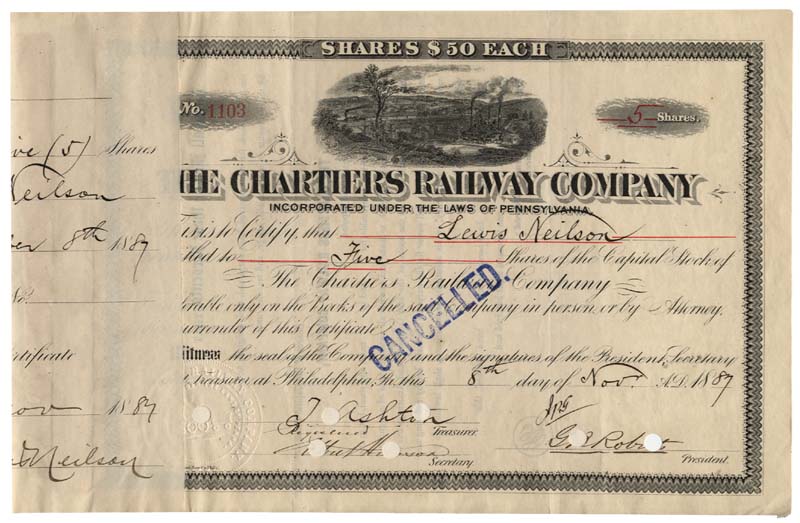 SHARES $50 EACH
No. 1103
5 Shares.
ive (5) Shares
HE CHARTIERS RAILWAY COMPANY
Neilson
INCORPORATED UNDER THE LAWS OF PENNSYLVANIA
is is to Certify, that Lewis Neilson
ber 8th 1887
led to Five Shares of the Capital Stock of
The Chartiers Railway Company
erable only on the Books of the said Company in person or by Attorney,
urrender of this Certificate.
CANCELLED.
ertificate
itness the seal of the Company and the signatures of the President, Secretary
Treasurer at Philadelphia, Pa. this 8th day of Nov. A.D. 1887
ov 1887
T Ashton
Treasurer.
G B Roberts
Neilson
Secretary
President.